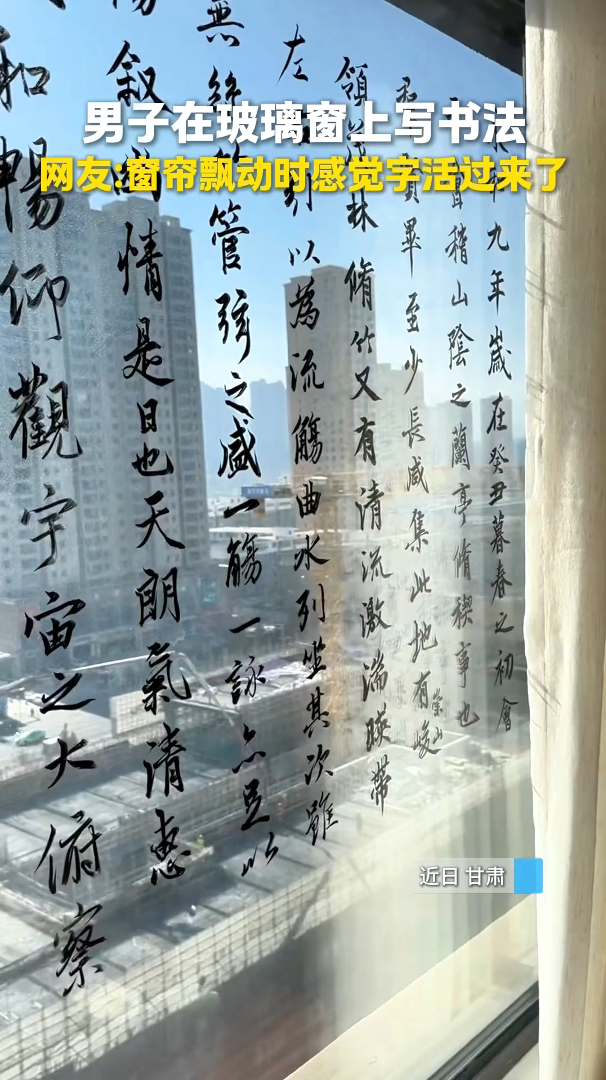 男子在玻璃窗上写书法
网友:窗帘飘动时感觉字活过来了
九年歲在癸丑暮春之初會
會稽山陰之蘭亭脩稧事也
賢畢至少長咸集此地有崇山峻
領茂林脩竹又有清流激湍暎帶
左引以為流觴曲水列坐其次雖
無絲竹管弦之盛一觴一詠亦足以
暢叙幽情是日也天朗氣清惠
和暢仰觀宇宙之大俯察
近日 甘肃